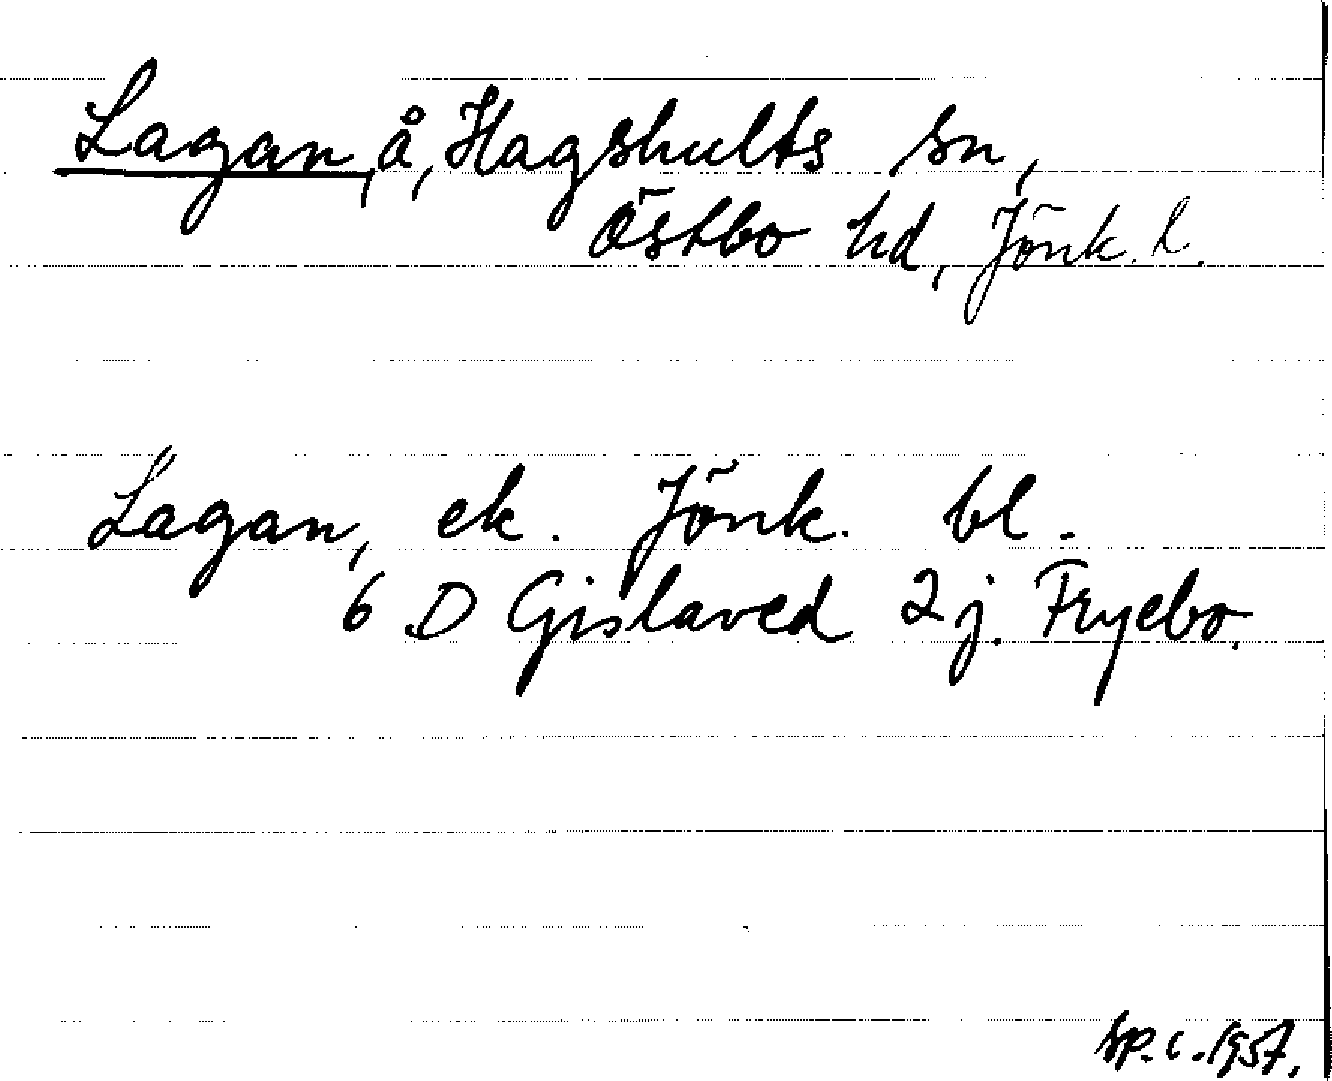 Lagan, å, Hagshults sn,
Östbo hd, Jönk. l.
Lagan, ek. Jönk. bl.
6 D Gislaved 2 j. Fryebo.
Sp. c. 1957.